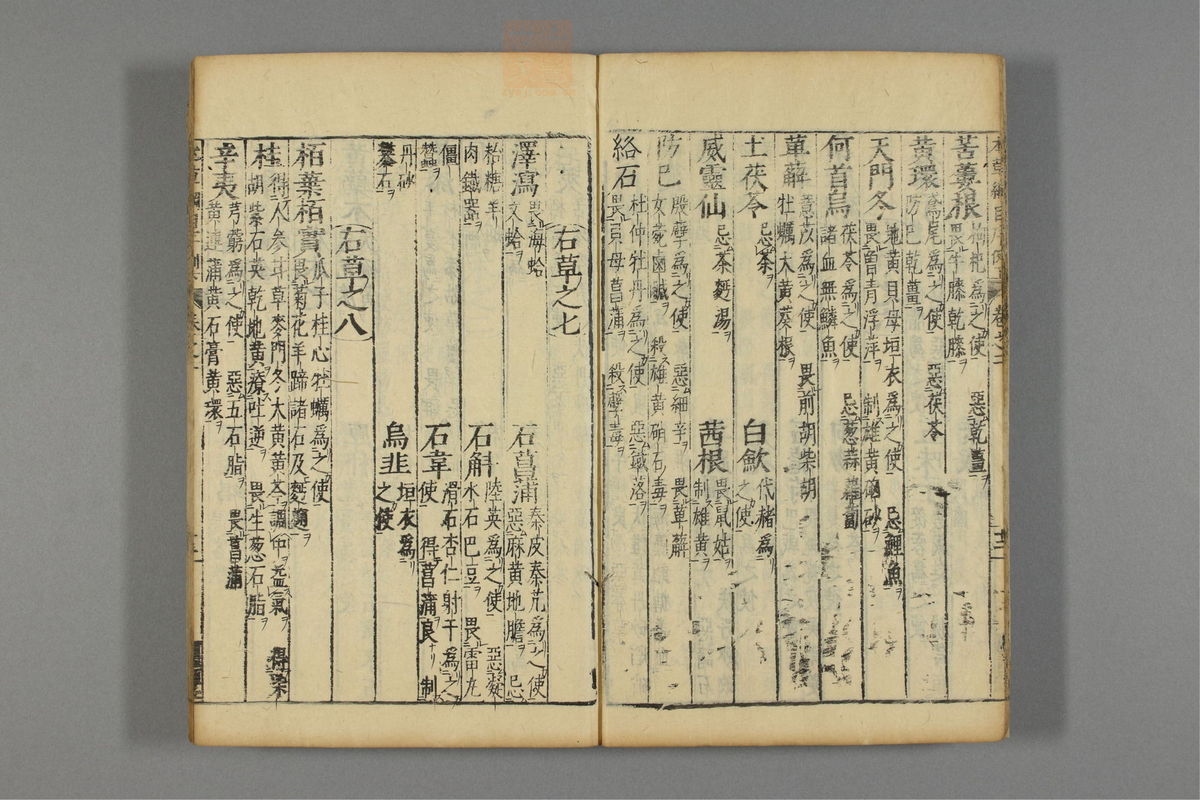 本草綱目序例 卷之二
苦薑根 枸杞為之使 惡乾薑
畏牛膝乾膝 惡茯苓
黃環 鳶尾為之使 惡茯苓
防巳乾薑
天門冬 地黃貝母垣衣為之使 忌鯉魚
畏曽青浮萍 制雄黃硇砂
何首烏 茯苓為之使
諸血無鱗魚 忌葱蒜蘿蔔
萆薢 薏苡為之使 畏前胡柴胡
牡蠣大黃葵根
土茯苓 忌茶
白歛 代赭為之使
威靈仙 忌茶麪湯
茜根 畏鼠姑
制雄黃
防巳 殷孽為之使 惡細辛 畏萆薢
女菀鹵鹹 殺雄黃硝石毒
絡石 杜仲牡丹為之使 惡鐵落
畏貝母菖蒲 殺孽毒
右草之七
澤瀉 畏海蛤
文蛤
石菖蒲 秦皮秦艽為之使
惡麻黃地膽 忌
飴糖羊
肉鐵器
石斛 陸英為之使 惡凝
水石巴豆 畏雷丸
僵
蠶
石韋 滑石杏仁射干為之
使 得菖蒲良 制
丹砂
礬石
烏韭 垣衣為
之使
右草之八
栢葉栢實 瓜子桂心牡蠣為之使
畏菊花羊蹄諸石及麪麴
桂 得人參甘草麥門冬大黃黃芩調中益氣 得柴
胡紫石英乾地黃療吐逆 畏生葱石脂
辛夷 芎藭為之使 惡五石脂 畏菖蒲
黃連蒲黃石膏黃環